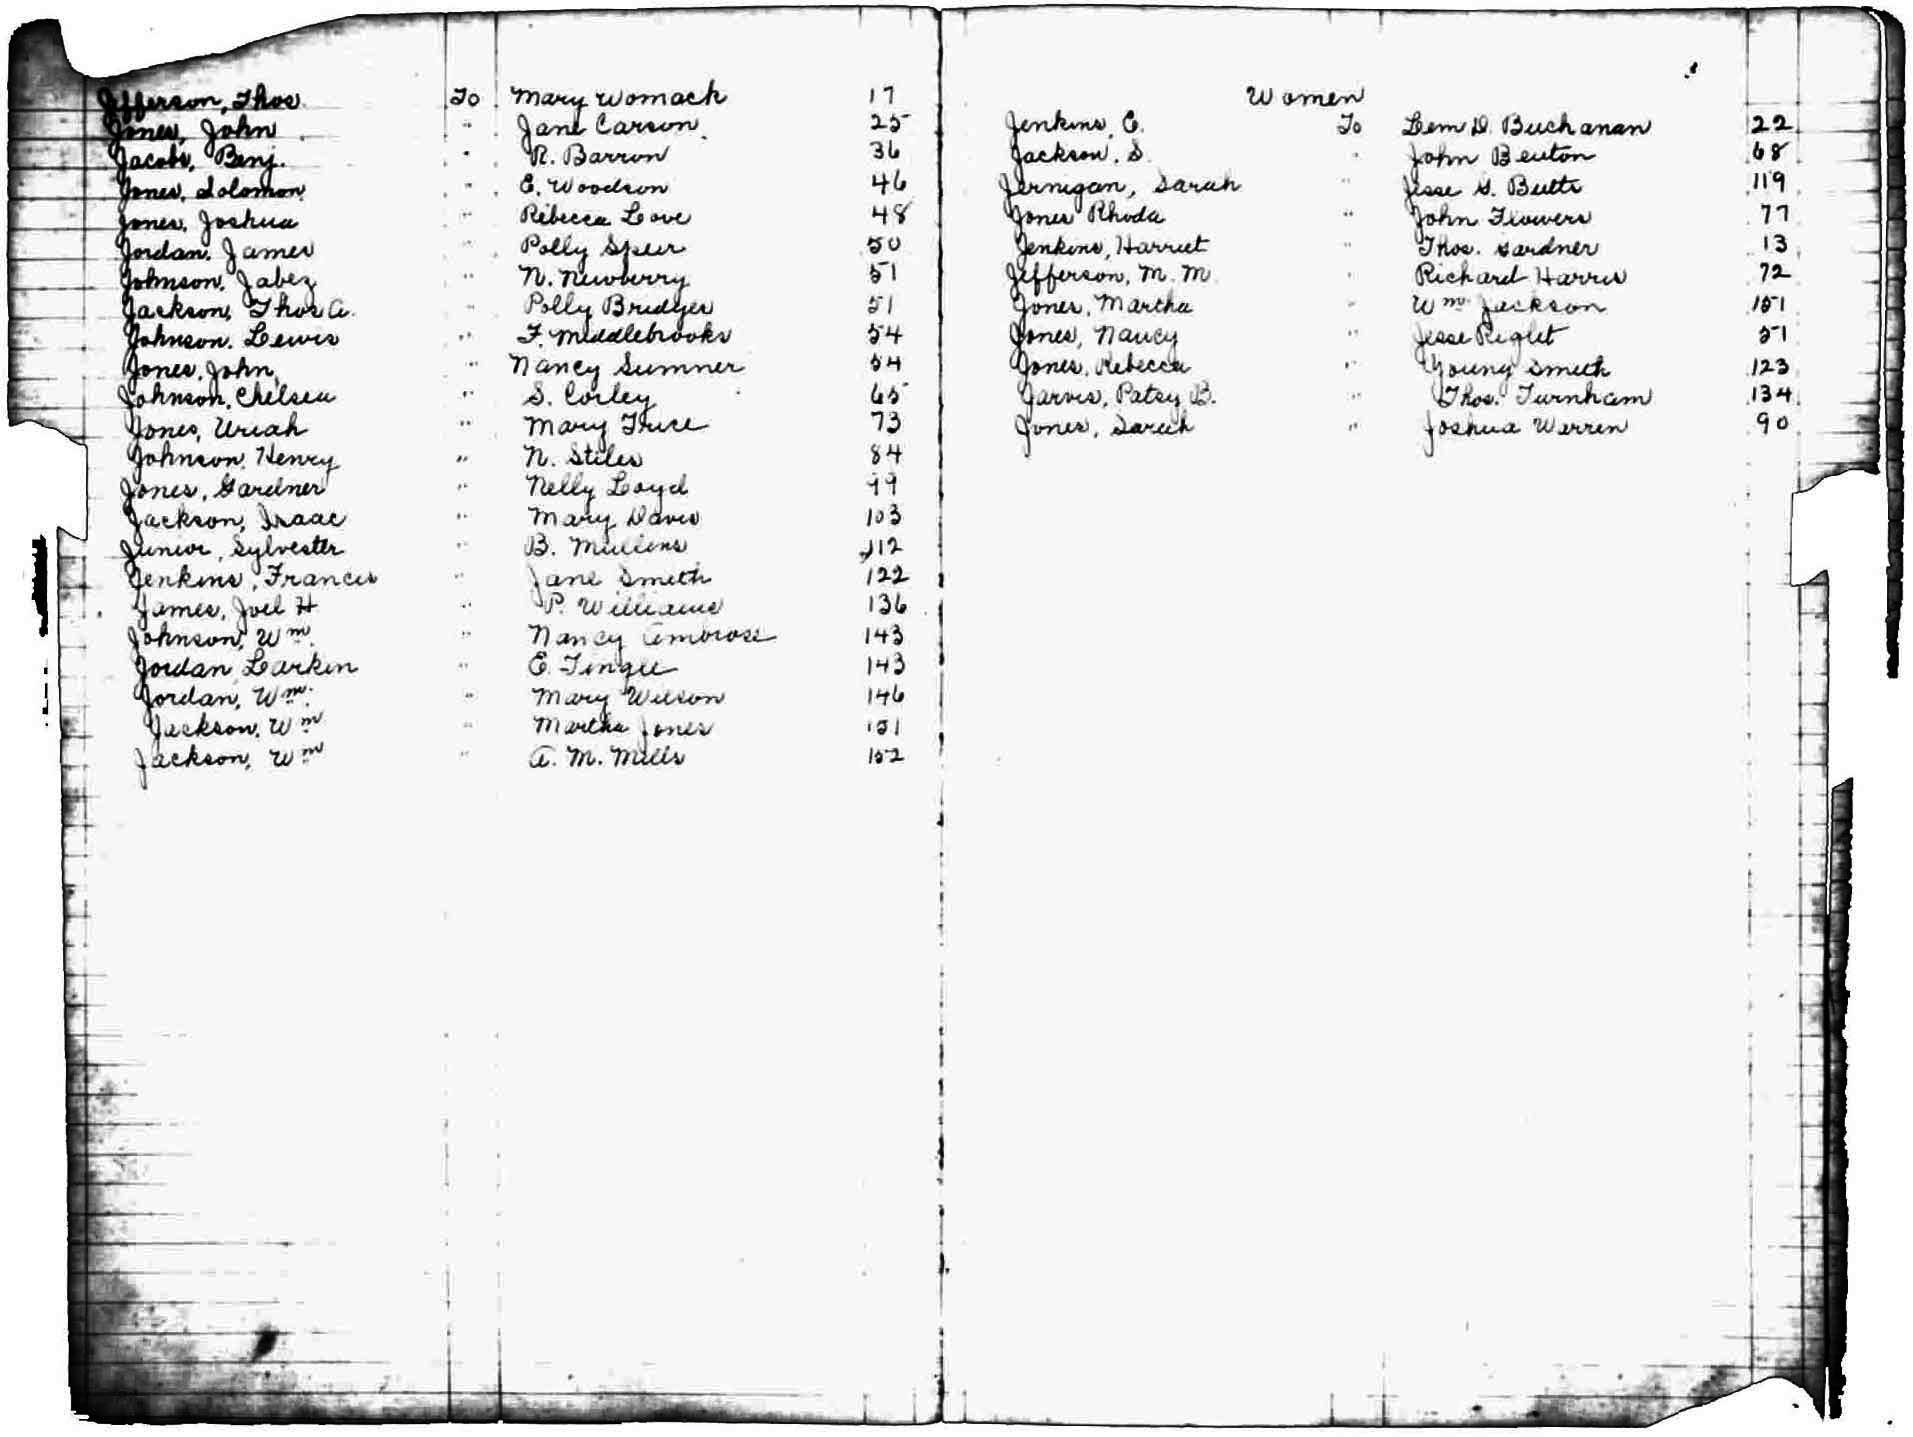 Jefferson, Thos. To Mary Womack 17
Jones, John " Jane Carson 25
Jacobs, Benj. " R. Barron 36
Jones, Solomon " E. Woodson 46
Jones, Joshua " Rebecca Love 48
Jordan, James " Polly Speer 50
Johnson, Jabez " N. Newberry 51
Jackson, Thos A. " Polly Bridges 51
Johnson, Lewis " F. Middlebrooks 54
Jones, John, " Nancy Sumner 54
Johnson, Chelsea " S. Corley 65
Jones, Uriah " Mary 73
Johnson, Henry " N. Stiles 84
Jones, Gardner " Nelly Loyd 99
Jackson, Isaac " Mary Davis 103
Junior, Sylvester " B. Mullens 112
Jenkins, Francis " Jane Smith 122
James, Joel H " P. Williams 136
Johnson, Wm. " Nancy Ambrose 143
Jordan, Larkin " E. 143
Jordan, Wm. " Mary Wilson 146
Jackson, Wm " Martha Jones 151
Jackson, Wm " A. M. Mills 152
Women
Jenkins, E. To Lem D. Buchanan 22
Jackson, S. " John Benton 68
Jernigan, Sarah " Jesse S. Butts 119
Jones Rhoda " John Flowers 77
Jenkins, Harriet " Thos. Gardner 13
Jefferson, M. M. " Richard Harris 72
Jones, Martha " Wm Jackson 151
Jones, Nancy " Jesse Right 51
Jones, Rebecca " Young Smith 123
Jarvis, Patsy B. " Thos. Turnham 134
Jones, Sarah " Joshua Warren 90